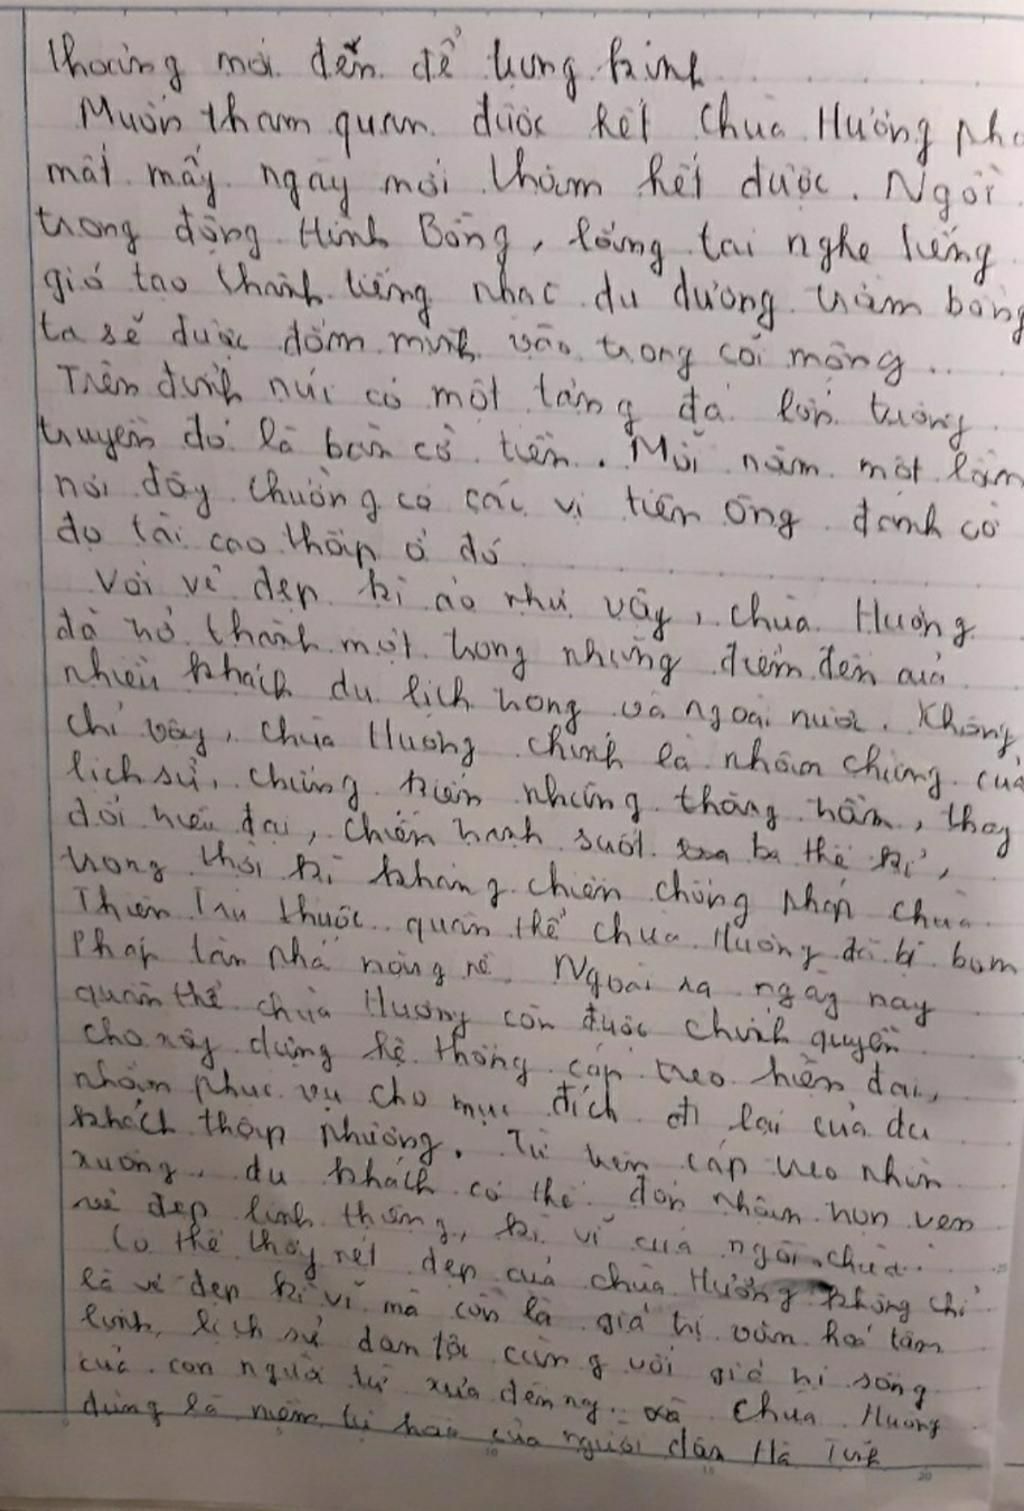 thoảng mới đến để tụng kinh
Muốn tham quan được hết Chùa Hương
mất mấy ngày mới thăm hết được. Ngồi
trong động Hinh Bồng, lắng tai nghe tiếng
gió tạo thành tiếng nhạc du dương trầm bổng
ta sẽ được đắm mình vào trong cõi mộng...
Trên đỉnh núi có một tảng đá lớn tương
truyền đó là bàn cờ tiên. Mỗi năm một lần
nơi đây thường có các vị tiên ông đánh cờ
đọ tài cao thấp ở đó
Với vẻ đẹp kì ảo như vậy, chùa Hương
đã trở thành một trong những điểm đến của
nhiều khách du lịch trong và ngoài nước. Không
chỉ vậy, chùa Hương chính là nhân chứng của
lịch sử, chứng kiến những thăng trầm, thay
đổi triều đại, chiến tranh suốt ba thế kỉ,
trong thời kì kháng chiến chống Pháp chùa
Thiên Trù thuộc quần thể chùa Hương đã bị bom
Pháp tàn phá nặng nề. Ngoài ra ngày nay
quần thể chùa Hương còn được chính quyền
cho xây dựng hệ thống cáp treo hiện đại,
nhằm phục vụ cho mục đích đi lại của du
khách thập phương. Từ trên cáp treo nhìn
xuống, du khách có thể đón nhận trọn vẹn
vẻ đẹp linh thiêng, kì vĩ của ngôi chùa.
Có thể thấy nét đẹp của chùa Hương không chỉ
là vẻ đẹp kì vĩ mà còn là giá trị văn hoá tâm
linh, lịch sử dân tộc cùng với giá trị sống
của con người từ xưa đến nay. và Chùa Hương
đúng là niềm tự hào của người dân Hà Tĩnh